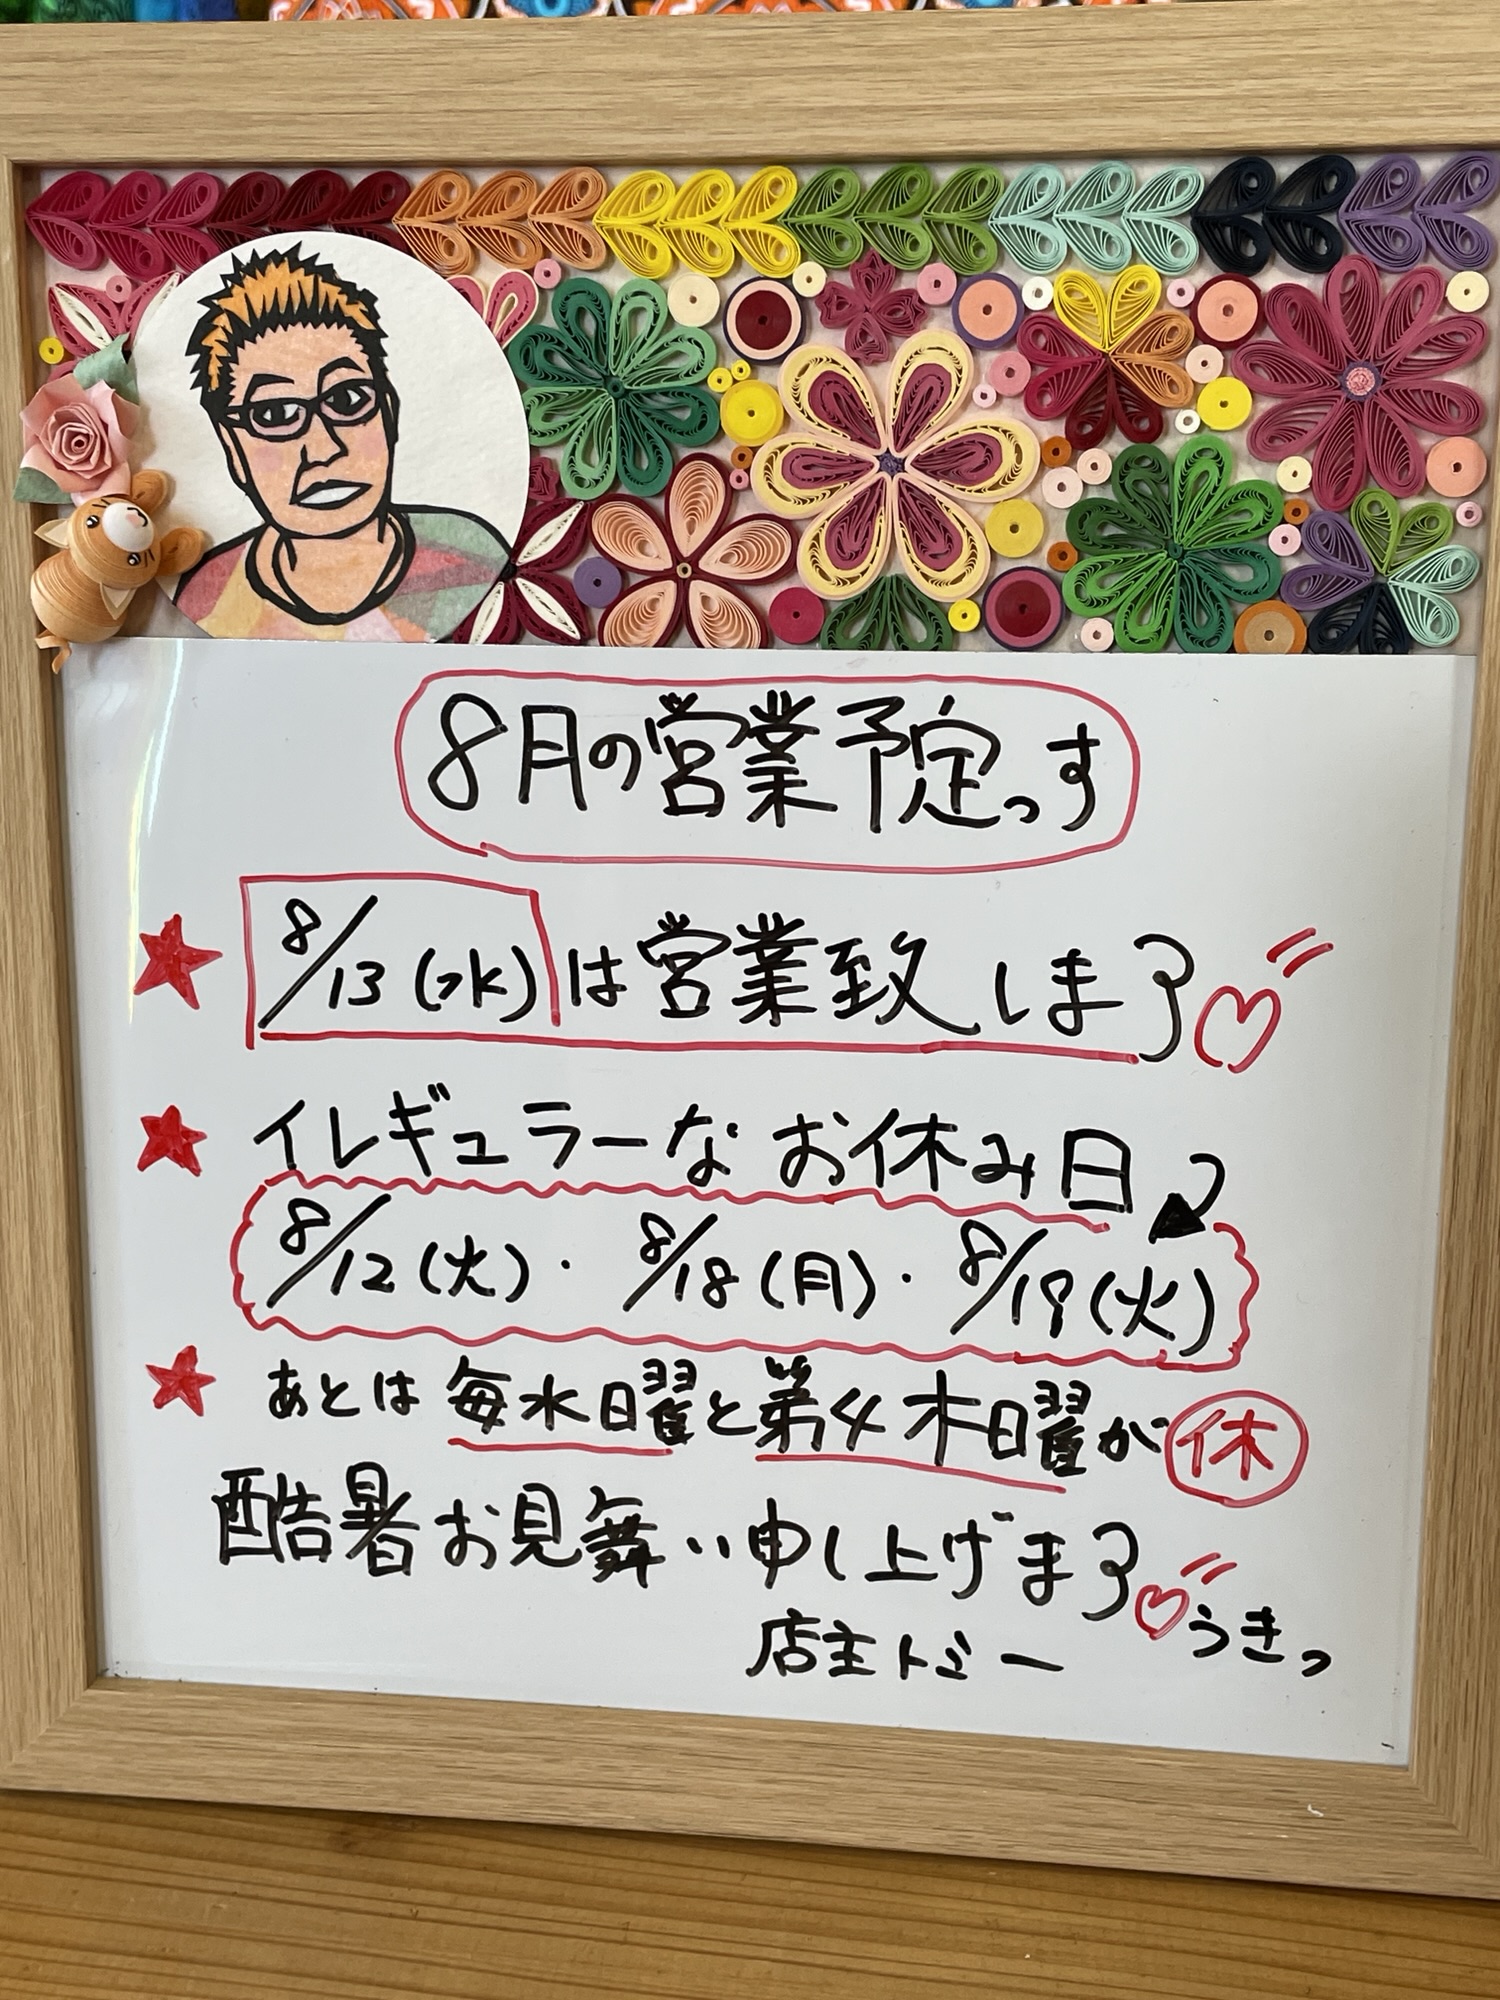 8月の営業予定っす
★ 8/13(水)は営業致します♡
★ イレギュラーなお休み日
8/12(火)・8/18(月)・8/19(火)
★ あとは毎水曜と第4木曜が㊡
酷暑お見舞い申し上げます♡うきっ
店主トミー